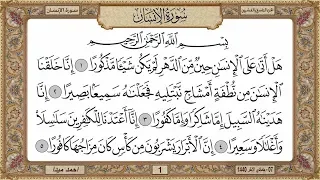 سورة الإنسان
سُورَةُ الإِنسَانِ
بِسْمِ اللَّهِ الرَّحْمَٰنِ الرَّحِيمِ
هَلْ أَتَىٰ عَلَى الْإِنسَٰنِ حِينٌ مِّنَ الدَّهْرِ لَمْ يَكُن شَيْـًٔا مَّذْكُورًا ١ إِنَّا خَلَقْنَا
الْإِنسَٰنَ مِن نُّطْفَةٍ أَمْشَاجٍ نَّبْتَلِيهِ فَجَعَلْنَٰهُ سَمِيعًۢا بَصِيرًا ٢ إِنَّا
هَدَيْنَٰهُ السَّبِيلَ إِمَّا شَاكِرًا وَإِمَّا كَفُورًا ٣ إِنَّا أَعْتَدْنَا لِلْكَٰفِرِينَ سَلَٰسِلَا۟
وَأَغْلَٰلًا وَسَعِيرًا ٤ إِنَّ الْأَبْرَارَ يَشْرَبُونَ مِن كَأْسٍ كَانَ مِزَاجُهَا كَافُورًا ٥
1